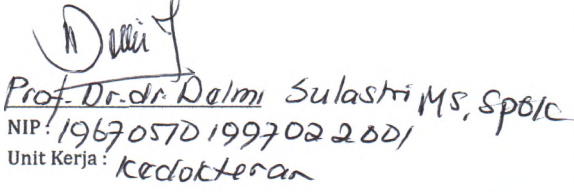 Prof. Dr. dr. Delmi Sulastri MS, SpGK
NIP: 196705101997022001
Unit Kerja: Kedokteran